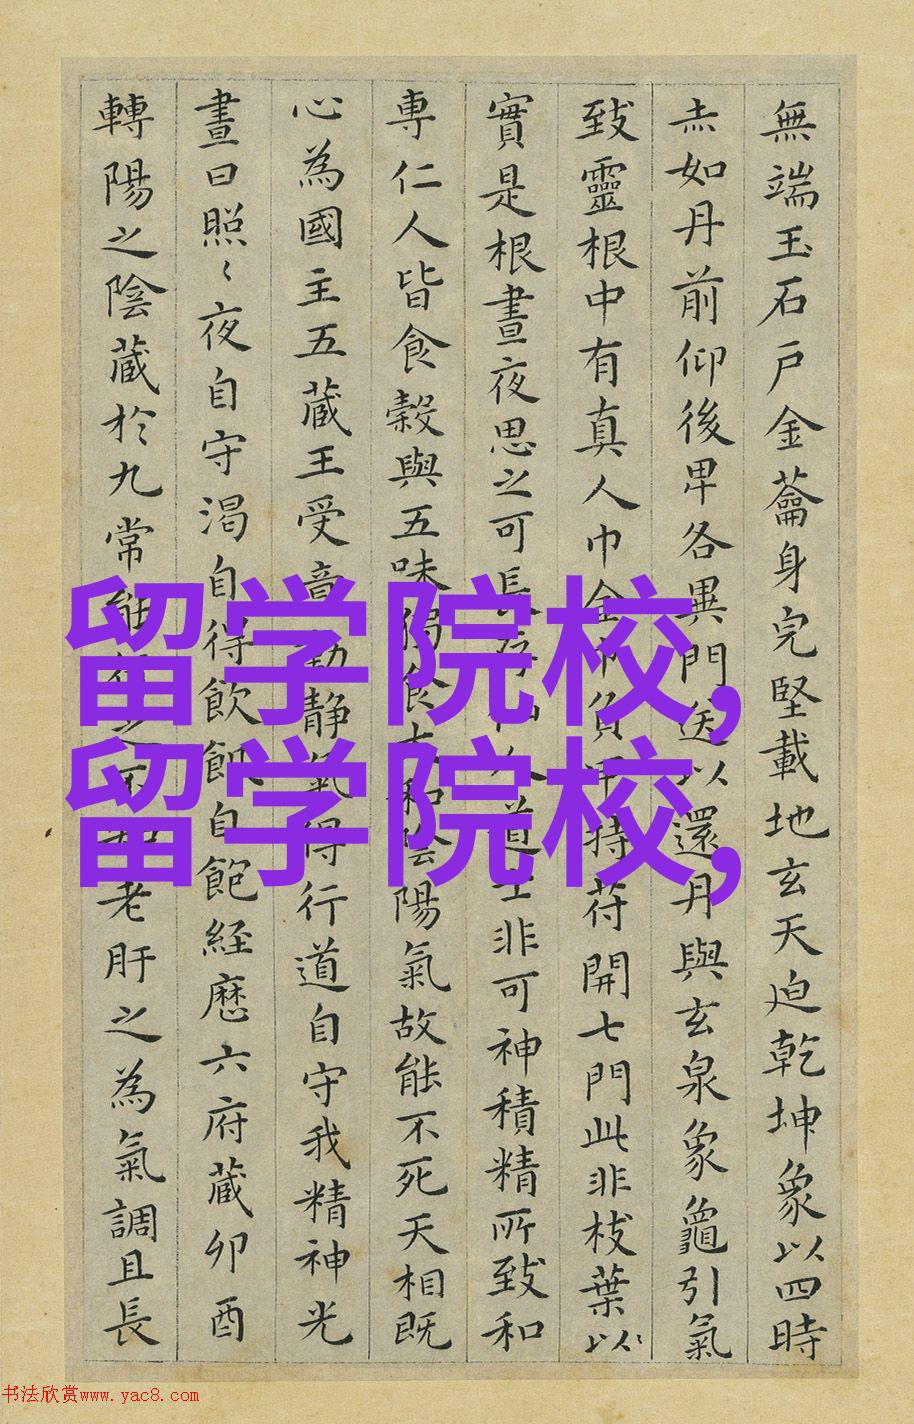 無端玉石戶金蘥身完堅載地玄天迫乾坤象以四時
赤如丹前仰後卑各異門送以還丹與玄泉象龜引氣
致靈根中有真人巾金巾負甲持苻開七門此非枝葉以〻
實是根晝夜思之可長存仙人道士非可神積精所致和
專仁人皆食穀與五味獨食太和陰陽氣故能不死天相既
心為國主五蔵王受意動静氣得行道自守我精神光
晝日照〻夜自守渴自得飲飢自飽経歴六府蔵卯酉
轉陽之陰蔵於九常能行之不知老肝之為氣調且長
留学院校,
留学院校,
书法欣赏www.yac8.com